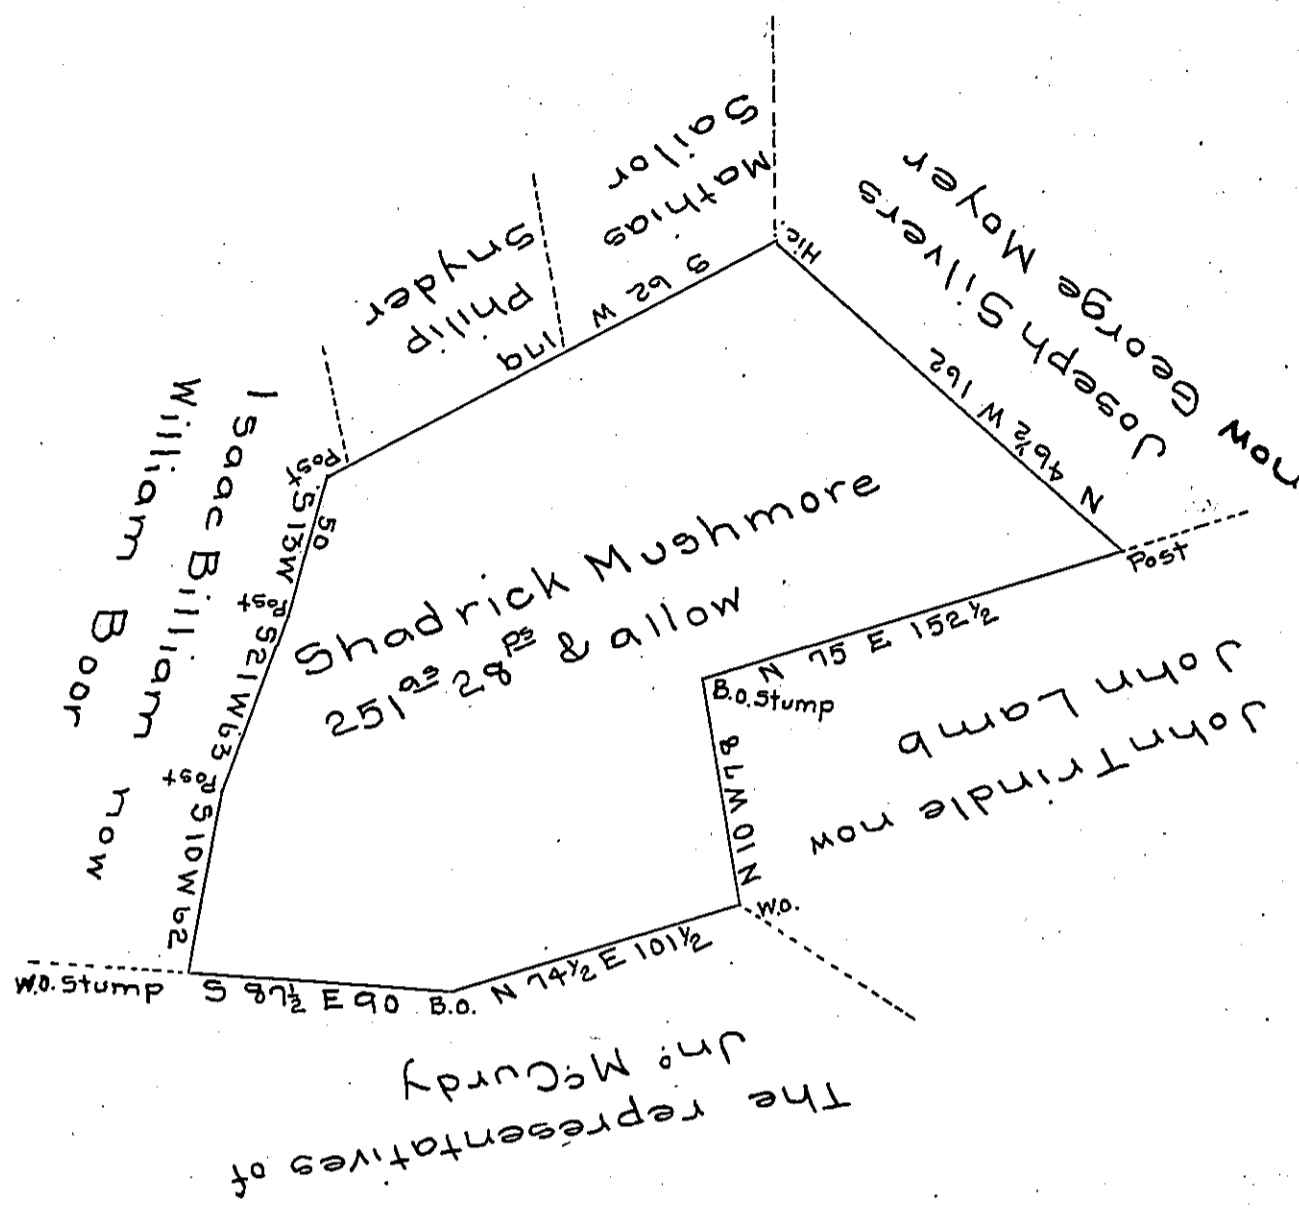 Mathias
Sailor
Philip
Snyder
Joseph Silvers
now George Moyer
Hic.
S 62 W
179
N 46½ W 162
Post
Post
S 13 W
50
Post
S 21 W 63
Post
S 10 W 62
Isaac Billiam now
William Boor
Shadrick Mushmore
251 as 28 ps & allow
N 75 E 152½
B.O. Stump
N 10 W 78
W.O.
John Trindle now
John Lamb
W.O. Stump
S 87½ E 90
B.O.
N 74½ E 101½
The representatives of
Jno. McCurdy